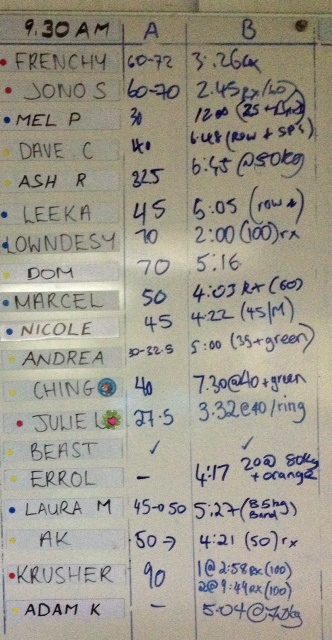 9.30 AM A B
FRENCHY 60-72 3:26rx
JONO S 60-70 2.45rx/60
MEL P 30 12:00 (25 +
DAVE C 40 6:48 (row + SP's)
ASH R 32.5 6:45 @50kg
LEEKA 45 5:05 (row
LOWNDESY 70 2:00 (100) rx
DOM 70 5:16
MARCEL 50 4:03 RX (60)
NICOLE 45 4:22 (45/M)
ANDREA 30-32.5 5:00 (35+green)
CHING 40 7.30@40+green
JULIE L 27.5 3.32@40/ring
BEAST ✓ ✓
ERROL – 4:17 20@ 80kg
+orange
LAURA M 45-50 5:27 (35kg
Band)
AK 50→ 4:21 (50) rx
KRUSHER 90 1@2:58rx(100)
2@9:49rx(100)
ADAM K – 5:04@70kg